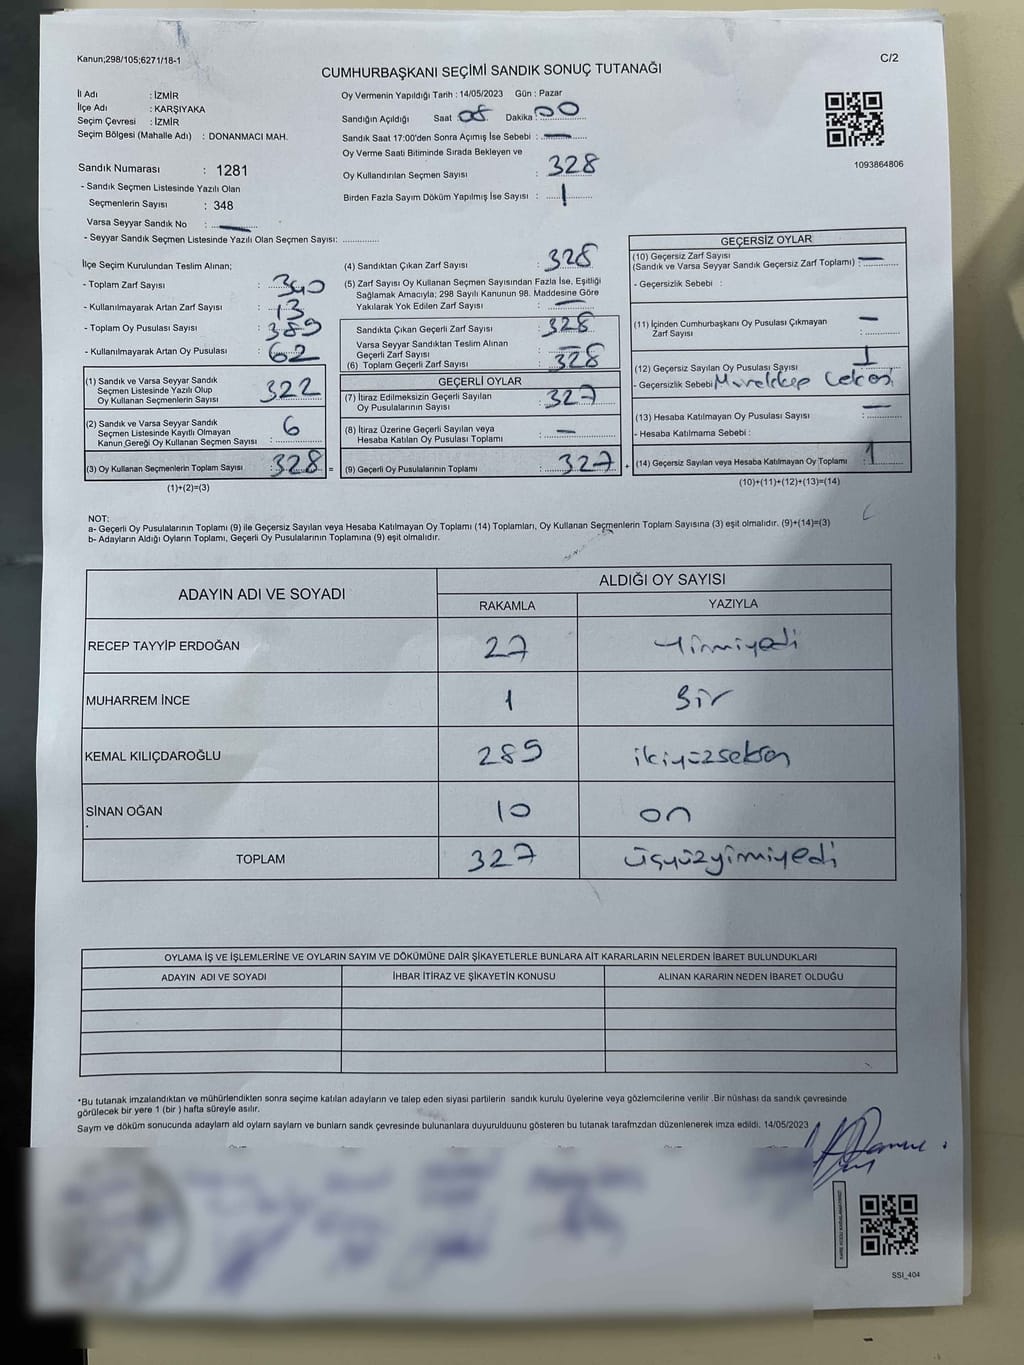 Kanun;298/105;6271/18-1
C/2
CUMHURBAŞKANI SEÇİMİ SANDIK SONUÇ TUTANAĞI
İl Adı : İZMİR
İlçe Adı : KARŞIYAKA
Seçim Çevresi : İZMİR
Seçim Bölgesi (Mahalle Adı) : DONANMACI MAH.
Sandık Numarası : 1281
- Sandık Seçmen Listesinde Yazılı Olan
Seçmenlerin Sayısı : 348
Varsa Seyyar Sandık No : —
- Seyyar Sandık Seçmen Listesinde Yazılı Olan Seçmen Sayısı: ..............
Oy Vermenin Yapıldığı Tarih : 14/05/2023 Gün : Pazar
Sandığın Açıldığı Saat 08 Dakika : 00
Sandık Saat 17:00'den Sonra Açımış İse Sebebi : —
Oy Verme Saati Bitiminde Sırada Bekleyen ve
Oy Kullandırılan Seçmen Sayısı : 328
Birden Fazla Sayım Döküm Yapılmış İse Sayısı : 1
1093864806
İlçe Seçim Kurulundan Teslim Alınan;
- Toplam Zarf Sayısı : 340
- Kullanılmayarak Artan Zarf Sayısı : 13
- Toplam Oy Pusulası Sayısı : 389
- Kullanılmayarak Artan Oy Pusulası : 62
(1) Sandık ve Varsa Seyyar Sandık
Seçmen Listesinde Yazılı Olup
Oy Kullanan Seçmenlerin Sayısı 322
(2) Sandık ve Varsa Seyyar Sandık
Seçmen Listesinde Kayıtlı Olmayan
Kanun Gereği Oy Kullanan Seçmen Sayısı : 6
(3) Oy Kullanan Seçmenlerin Toplam Sayısı : 328 =
(1)+(2)=(3)
(4) Sandıktan Çıkan Zarf Sayısı : 328
(5) Zarf Sayısı Oy Kullanan Seçmen Sayısından Fazla İse, Eşitliği
Sağlamak Amacıyla; 298 Sayılı Kanunun 98. Maddesine Göre
Yakılarak Yok Edilen Zarf Sayısı : —
Sandıkta Çıkan Geçerli Zarf Sayısı : 328
Varsa Seyyar Sandıktan Teslim Alınan
Geçerli Zarf Sayısı : —
(6) Toplam Geçerli Zarf Sayısı : 328
GEÇERLİ OYLAR
(7) İtiraz Edilmeksizin Geçerli Sayılan
Oy Pusulalarının Sayısı : 327
(8) İtiraz Üzerine Geçerli Sayılan veya
Hesaba Katılan Oy Pusulası Toplamı : —
(9) Geçerli Oy Pusulalarının Toplamı : 327 +
GEÇERSİZ OYLAR
(10) Geçersiz Zarf Sayısı
(Sandık ve Varsa Seyyar Sandık Geçersiz Zarf Toplamı) : —
- Geçersizlik Sebebi :
(11) İçinden Cumhurbaşkanı Oy Pusulası Çıkmayan
Zarf Sayısı : —
(12) Geçersiz Sayılan Oy Pusulası Sayısı : 1
- Geçersizlik Sebebi : Mürekkep Lekesi
(13) Hesaba Katılmayan Oy Pusulası Sayısı : —
- Hesaba Katılmama Sebebi :
(14) Geçersiz Sayılan veya Hesaba Katılmayan Oy Toplamı : 1
(10)+(11)+(12)+(13)=(14)
NOT:
a- Geçerli Oy Pusulalarının Toplamı (9) ile Geçersiz Sayılan veya Hesaba Katılmayan Oy Toplamı (14) Toplamları, Oy Kullanan Seçmenlerin Toplam Sayısına (3) eşit olmalıdır. (9)+(14)=(3)
b- Adayların Aldığı Oyların Toplamı, Geçerli Oy Pusulalarının Toplamına (9) eşit olmalıdır.
ADAYIN ADI VE SOYADI ALDIĞI OY SAYISI
RAKAMLA YAZIYLA
RECEP TAYYİP ERDOĞAN 27 Yirmiyedi
MUHARREM İNCE 1 Bir
KEMAL KILIÇDAROĞLU 289 ikiyüzseksen
SİNAN OĞAN 10 on
TOPLAM 327 üçyüzyirmiyedi
OYLAMA İŞ VE İŞLEMLERİNE VE OYLARIN SAYIM VE DÖKÜMÜNE DAİR ŞİKAYETLERLE BUNLARA AİT KARARLARIN NELERDEN İBARET BULUNDUKLARI
ADAYIN ADI VE SOYADI İHBAR İTİRAZ VE ŞİKAYETİN KONUSU ALINAN KARARIN NEDEN İBARET OLDUĞU
*Bu tutanak imzalandıktan ve mühürlendikten sonra seçime katılan adayların ve talep eden siyasi partilerin sandık kurulu üyelerine veya gözlemcilerine verilir .Bir nüshası da sandık çevresinde
görülecek bir yere 1 (bir ) hafta süreyle asılır.
Sayım ve döküm sonucunda adayların ald oyların sayları ve bunların sandk çevresinde bulunanlara duyurulduunu gösteren bu tutanak tarafmzdan düzenlenerek imza edildi. 14/05/2023
SSI_404